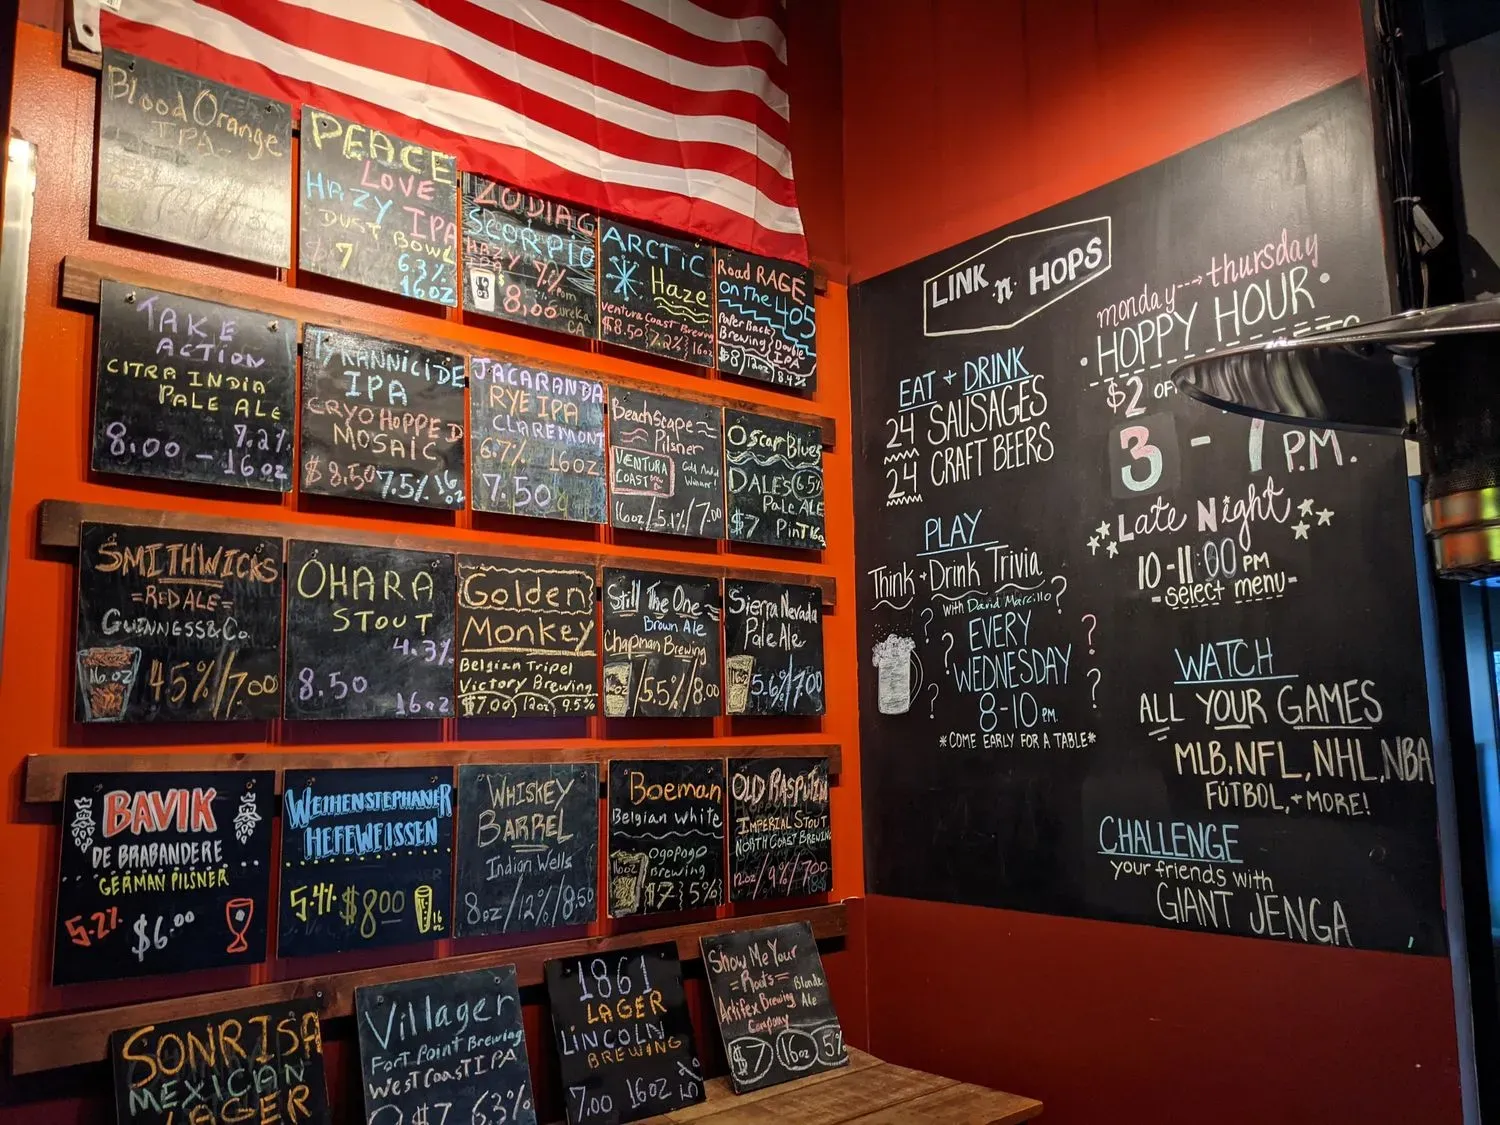 Blood Orange
IPA
PEACE
LOVE
HAZY IPA
DUST BOWL
$7
6.3%
16oz
ZODIAC
SCORPIO
HAZY
IPA
7%
$8.00
Eureka
CA
ARCTIC
Haze
Ventura Coast Brewing
$8.50 7.2% 16oz
Road RAGE
on the 405
Paperback
Brewing Double
IPA
$8 12oz 8.4%
TAKE
ACTION
CITRA INDIA
PALE ALE
7.2%
8.00 - 16oz
TYRANNICIDE
IPA
CRYO HOPPED
MOSAIC
$8.50 7.5% 16oz
JACARANDA
RYE IPA
CLAREMONT
6.7% 16oz
7.50
BeachScape
Pilsner
VENTURA
COAST
Gold Medal
Winner!
16oz/5.1%/7.00
Oscar Blues
DALE'S 6.5%
Pale ALE
$7 Pint 16oz
SMITHWICKS
=RED ALE=
GUINNESS & CO.
16 oz 4.5%/7.00
OHARA
STOUT
4.3%
8.50
16oz
Golden
Monkey
Belgian Tripel
Victory Brewing
$7.00 12oz 9.5%
Still The One
Brown Ale
Chapman Brewing
16oz /5.5%/8.00
Sierra Nevada
Pale Ale
16oz 5.6%/7.00
BAVIK
DE BRABANDERE
GERMAN PILSNER
5.2% $6.00
WEIHENSTEPHANER
HEFEWEISSEN
5.4% $8.00 16
WHISKEY
BARREL
Indian Wells
8oz/12%/8.50
Boeman
Belgian White
Ogopogo
Brewing
16oz $7 5%
OLD RASPUTIN
IMPERIAL STOUT
NORTH COAST BREWING
12oz/9%/7.00
SONRISA
MEXICAN
LAGER
Villager
Fort Point Brewing
West Coast IPA
$7 6.3%
1861
LAGER
LINCOLN
BREWING
7.00 16oz 5%
Show Me Your
=Roots= Blonde
Artifex Brewing Ale
Company
$7 16oz 5%
LINK n HOPS
EAT + DRINK
24 SAUSAGES
24 CRAFT BEERS
PLAY
Think + Drink Trivia
with David Marcillo
EVERY
WEDNESDAY
8-10 PM
*COME EARLY FOR A TABLE*
monday---thursday
• HOPPY HOUR •
$2
3 - 7 P.M.
Late Night
10-11:00 PM
-select menu-
WATCH
ALL YOUR GAMES
MLB, NFL, NHL, NBA
FÚTBOL, + MORE!
CHALLENGE
your friends with
GIANT JENGA